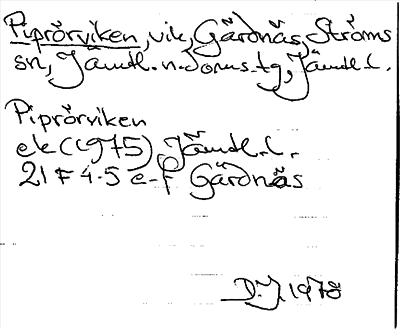 Piprörviken, vik, Gärdnäs, Ströms
sn, Jämtl. n. doms. tg, Jämtl. l.
Piprörviken
ek (1975), Jämtl. l.
21 F 4-5 e-f Gärdnäs
D.J. 1978